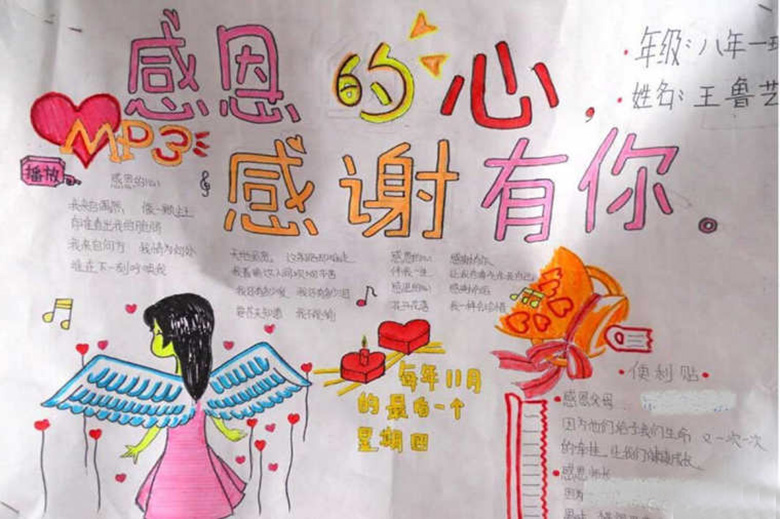 感恩的心，
感谢有你。
年级：八年一班
姓名：王鲁艺
MP3
播放
感恩的心
我来自偶然 像一颗尘土
有谁看出我的脆弱
我来自何方 我情归何处
谁在下一刻呼唤我
天地虽宽 这条路却难走
我看遍这人间坎坷辛苦
我还有多少爱 我还有多少泪
要苍天知道 我不认输
感恩的心 感谢有你
伴我一生 让我有勇气作我自己
感恩的心 感谢命运
花开花落 我一样会珍惜
每年11月
的最后一个
星期四
·便利贴·
·感恩父母
因为他们给予我们生命 又一次一次
的牵挂 让我们健康成长
·感恩师长
因为